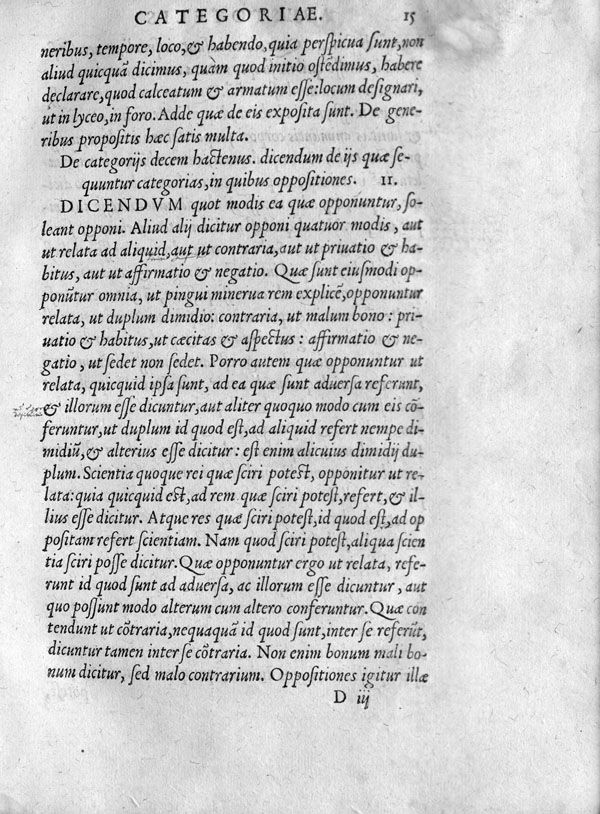 CATEGORIAE. 15
neribus, tempore, loco, & habendo, quia perspicua sunt, non
aliud quicquā dicimus, quàm quod initio ostēdimus, habere
declarare, quod calceatum & armatum esse: locum designari,
ut in lyceo, in foro. Adde quæ de eis exposita sunt. De gene-
ribus propositis hæc satis multa.
De categorijs decem hactenus. dicendum de ijs quæ se-
quuntur categorias, in quibus oppositiones. 11.
DICENDVM quot modis ea quæ opponuntur, so-
leant opponi. Aliud alij dicitur opponi quatuor modis, aut
ut relata ad aliquid, aut ut contraria, aut ut priuatio & ha-
bitus, aut ut affirmatio & negatio. Quæ sunt eiusmodi op-
ponūtur omnia, ut pingui minerua rem explicē, opponuntur
relata, ut duplum dimidio: contraria, ut malum bono: pri-
uatio & habitus, ut cæcitas & aspectus: affirmatio & ne-
gatio, ut sedet non sedet. Porro autem quæ opponuntur ut
relata, quicquid ipsa sunt, ad ea quæ sunt aduersa referunt,
& illorum esse dicuntur, aut aliter quoquo modo cum eis cō-
feruntur, ut duplum id quod est, ad aliquid refert nempe di-
midiū, & alterius esse dicitur: est enim alicuius dimidij du-
plum. Scientia quoque rei quæ sciri potest, opponitur ut re-
lata: quia quicquid est, ad rem quæ sciri potest, refert, & il-
lius esse dicitur. Atque res quæ sciri potest, id quod est, ad op
positam refert scientiam. Nam quod sciri potest, aliqua scien
tia sciri posse dicitur. Quæ opponuntur ergo ut relata, refe-
runt id quod sunt ad aduersa, ac illorum esse dicuntur, aut
quo possunt modo alterum cum altero conferuntur. Quæ con
tendunt ut cōtraria, nequaquā id quod sunt, inter se referūt,
dicuntur tamen inter se cōtraria. Non enim bonum mali bo-
num dicitur, sed malo contrarium. Oppositiones igitur illæ
D iij